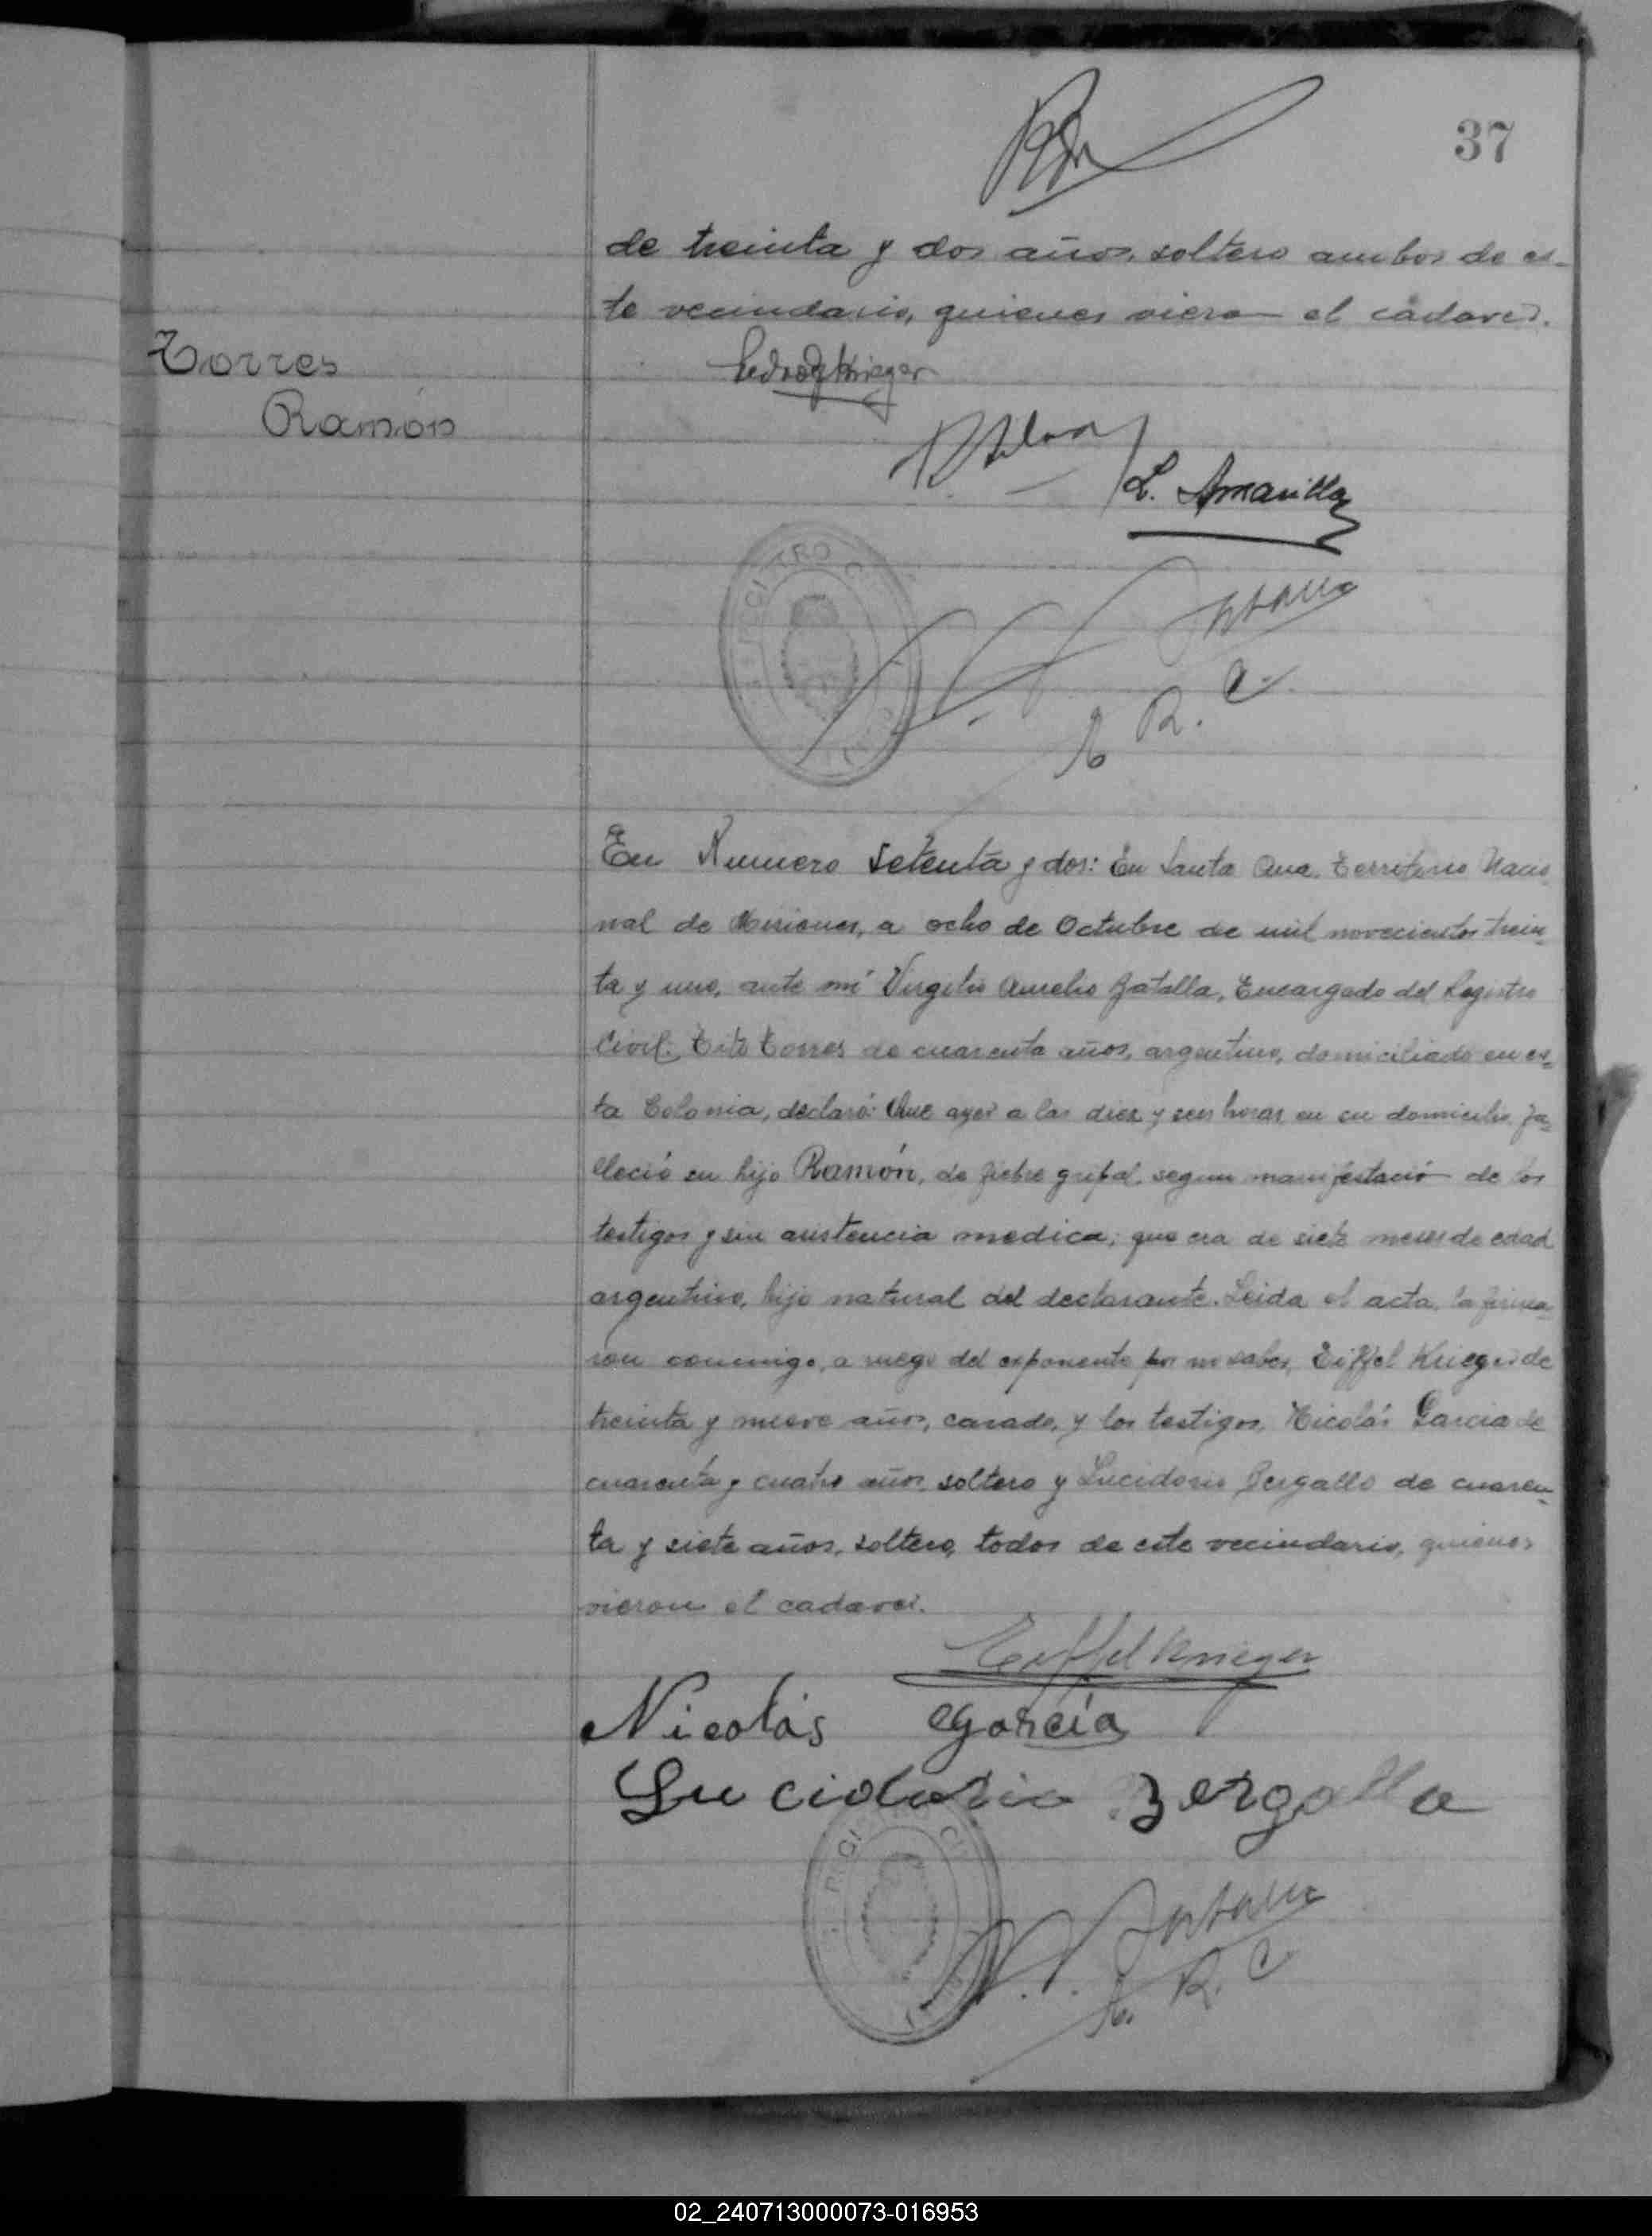 37
de treinta y dos años, soltero ambos de es-
te vecindario, quienes viero el cadaver.
Torres
Ramón
Pedro Krieger
L. Amarilla
REGISTRO C
E. R. C.
En Numero Setenta y dos: En Santa Ana, Territorio Nacio-
nal de Misiones, a ocho de Octubre de mil novecientos trein-
ta y uno, ante mí Virgilio Aurelio Batalla, Encargado del Registro
Civil: Tito Torres de cuarenta años, argentino, domiciliado en es-
ta Colonia, declaró: Que ayer a las diez y seis horas en su domicilio fa-
lleció su hijo Ramón, de fiebre gripal, segun manifestació de los
testigos y sin asistencia medica; que era de siete meses de edad
argentino, hijo natural del declarante. Leida el acta, la firma-
ron conmigo, a ruego del exponente por no saber, Eiffel Krieger de
treinta y nueve años, casado, y los testigos, Nicolás Garcia de
cuarenta y cuatro años soltero y Lucidorio Bergallo de cuaren-
ta y siete años, soltero, todos de este vecindario, quienes
vieron el cadaver.
Eiffel Krieger
Nicolás García
Lucidorio Bergallo
REGI
E. R. C
02_240713000073-016953